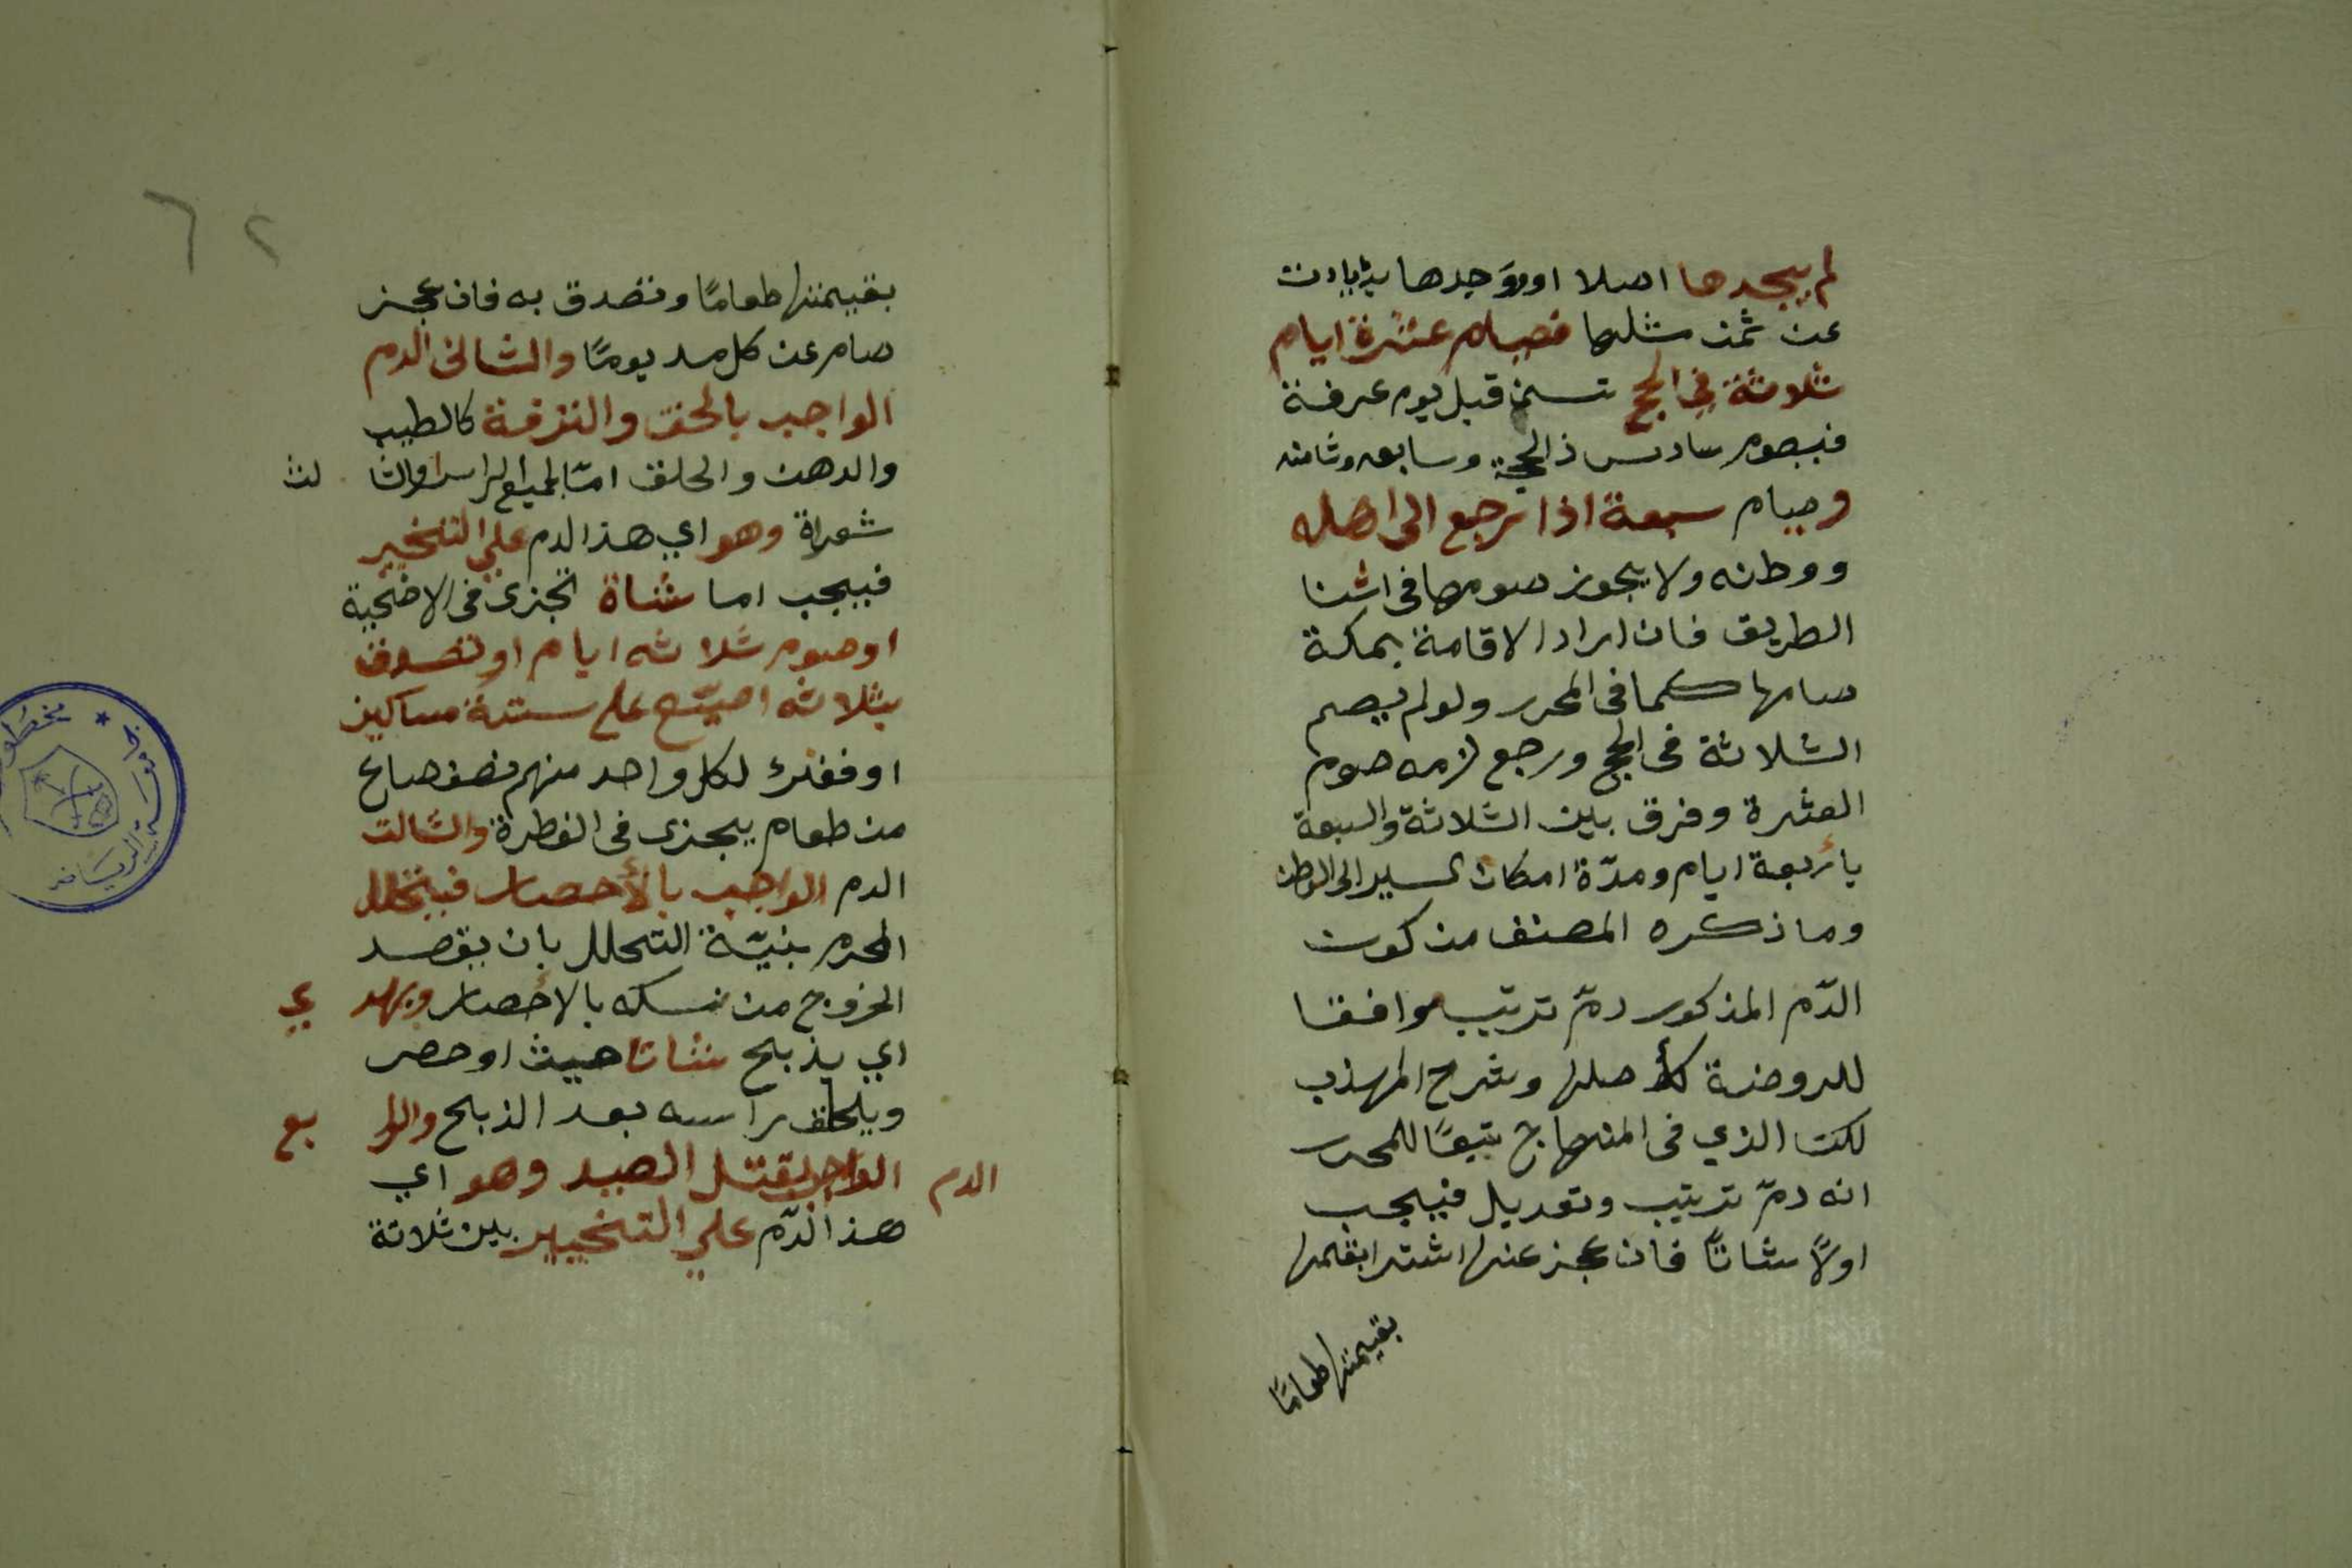 لم يجدها اصلا او وجدها بزيادت
عن ثمن مثلها فصيام عشرة ايام
ثلاثة في الحج تسن قبل يوم عرفة
فيصوم سادس ذالحجة وسابعه وثامنه
وصيام سبعة اذا رجع الى اهله
ووطنه ولا يجوز صومها في اثنا
الطريق فان اراد الاقامة بمكة
صامها كما في المحرر ولو لم يصم
الثلاثة في الحج ورجع لزمه صوم
العشرة وفرق بين الثلاثة والسبعة
بأربعة ايام ومدّة امكان السير الى الوطن
وما ذكره المصنف من كون
الدّم المذكور دمّ ترتيب موافقا
للروضة كأصلها وشرح المهذب
لكن الذي في المنهاج تبعًا للمحرر
انه دمّ ترتيب وتعديل فيجب
اولًا شاتًا فان عجز عنها اشترا بقيمتها
بقيمتها طعامًا
٦٢
بقيمتها طعامًا وتصدق به فان عجز
صام عن كل مد يومًا والثاني الدم
الواجب بالحلق والترفة كالطيب
والدهن والحلق امّا لجميع الراس او لثا لث
شعراة وهو اي هذا الدم على التخيير
فيجب اما شاة تجزى في الاضحية
او صوم ثلاثه ايام او تصدق
بثلاثه اصيّع على ستة مساكين
او فقرئ لكل واحد منهم نصف صاع
من طعام يجزى في الفطرة والثالث
الدم الواجب بالأحصار فيتحلل
المحرم بنيّة التحلل بان يقصد
الخروج من نسكه بالأحصار ويهد ي
اي يذبح شاتا حيث او حصر
ويلحلق راسه بعد الذبح والرا بع
الدم الواجب بقتل الصيد وهو اي
هذا الدّم علي التخيير بين ثلاثة